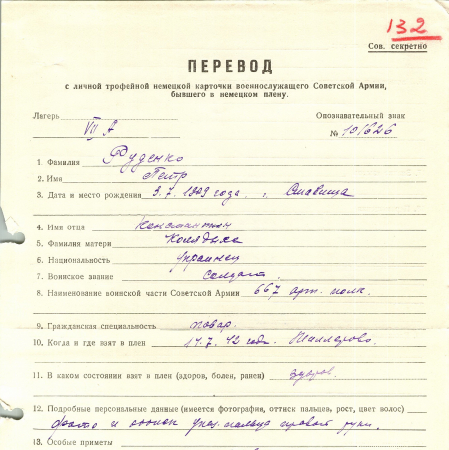 132
Сов. секретно
ПЕРЕВОД
с личной трофейной немецкой карточки военнослужащего Советской Армии,
бывшего в немецком плену.
Лагерь VII A
Опознавательный знак
№ 101626
1. Фамилия Руденко
2. Имя Петр
3. Дата и место рождения 3.7.1909 года. г. Славица
4. Имя отца Константин
5. Фамилия матери Колядыха
6. Национальность Украинец
7. Воинское звание солдат.
8. Наименование воинской части Советской Армии 667 арт. полк.
9. Гражданская специальность повар.
10. Когда и где взят в плен 17.7.42 года. Миллерово.
11. В каком состоянии взят в плен (здоров, болен, ранен) здоров.
12. Подробные персональные данные (имеется фотография, оттиск пальцев, рост, цвет волос)
фото и оттиск указ. пальца правой руки.
13. Особые приметы